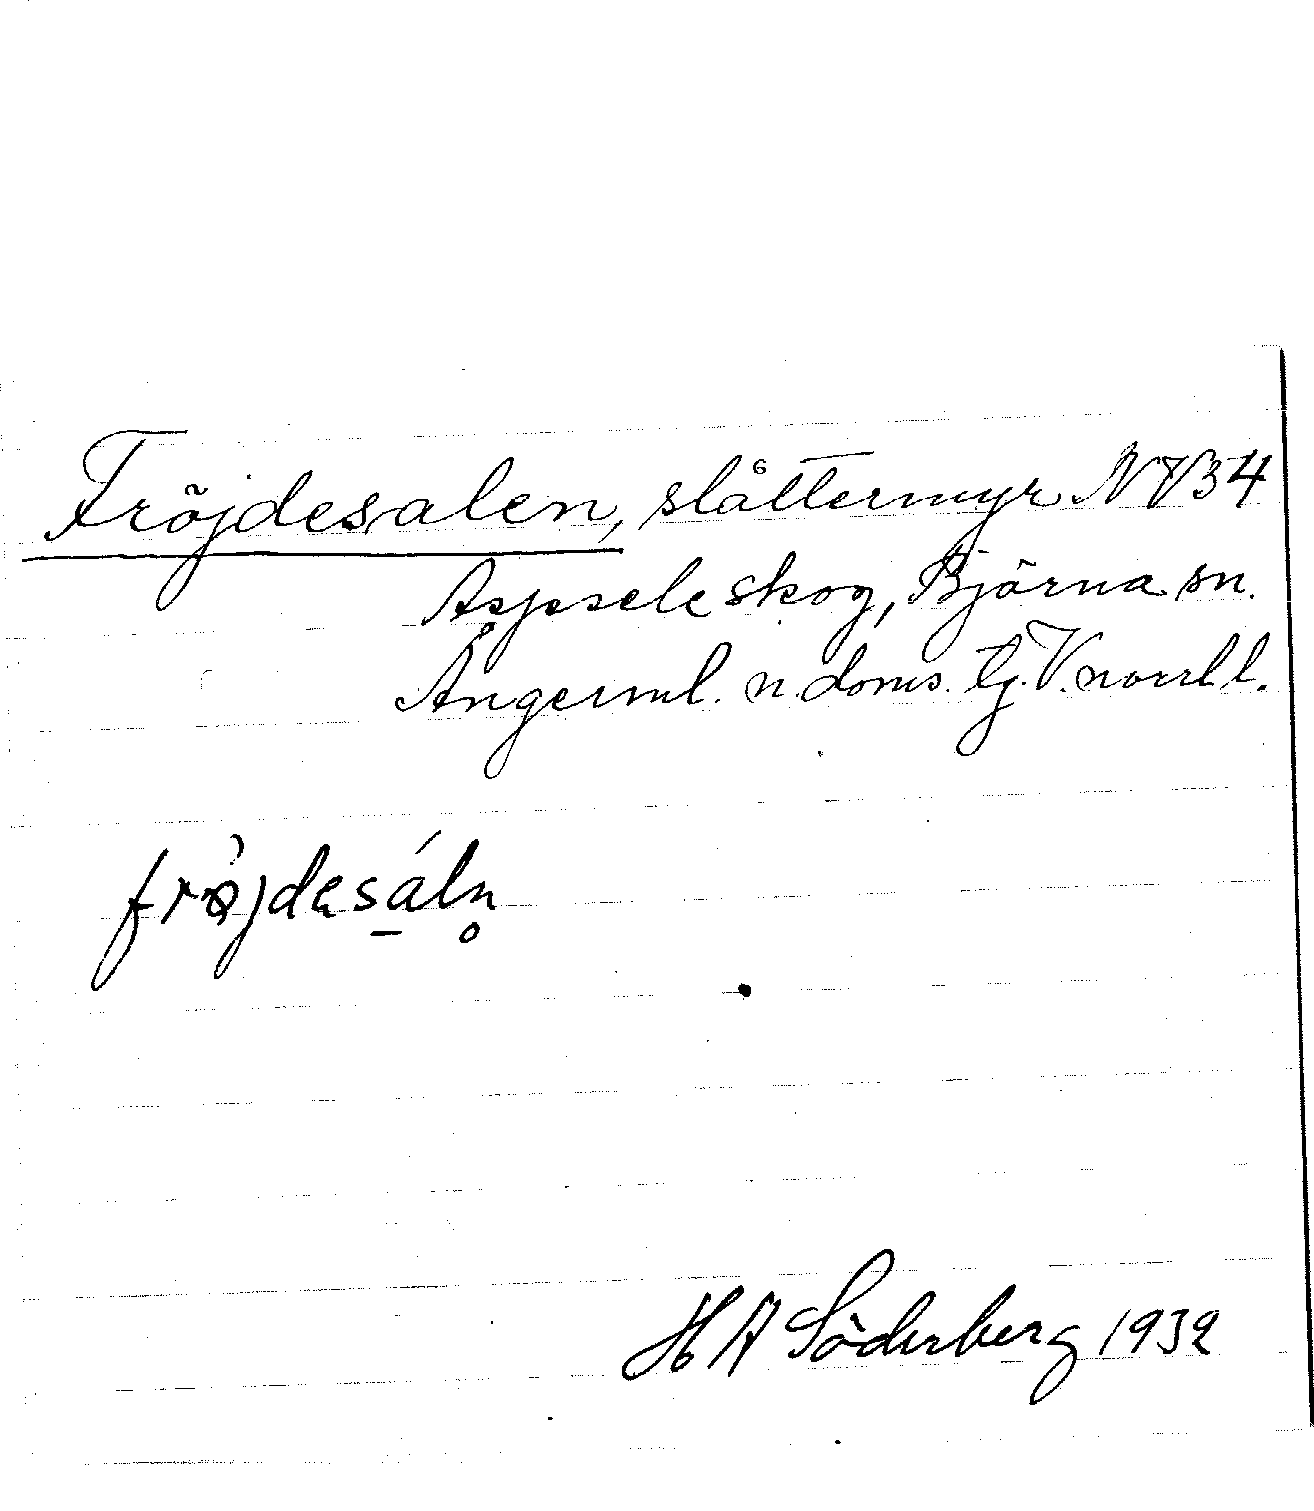 Fröjdesalen, slåttermyr NV34
Aspsele skog, Björna sn.
Ångerml. n. doms. tg. V. norrl l.
fröjdesáln̥
H A Söderberg 1932